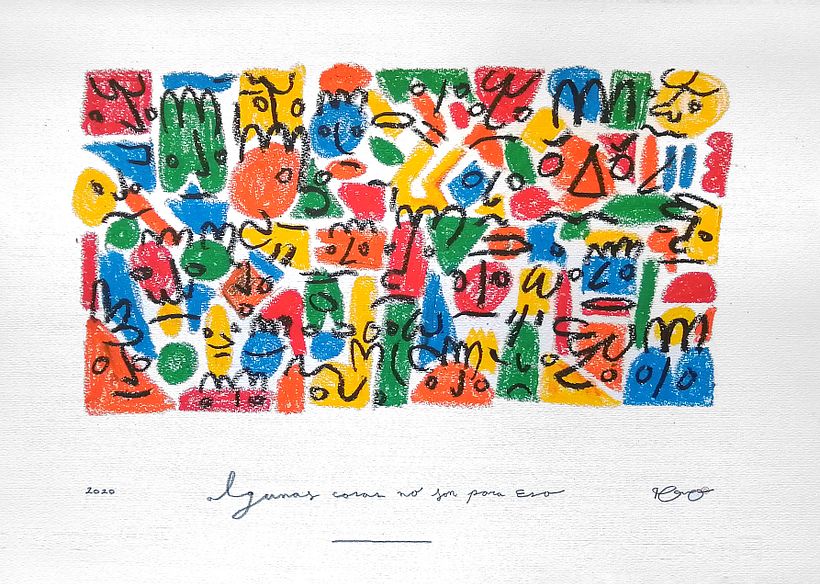 2020 algunas cosas no son para eso